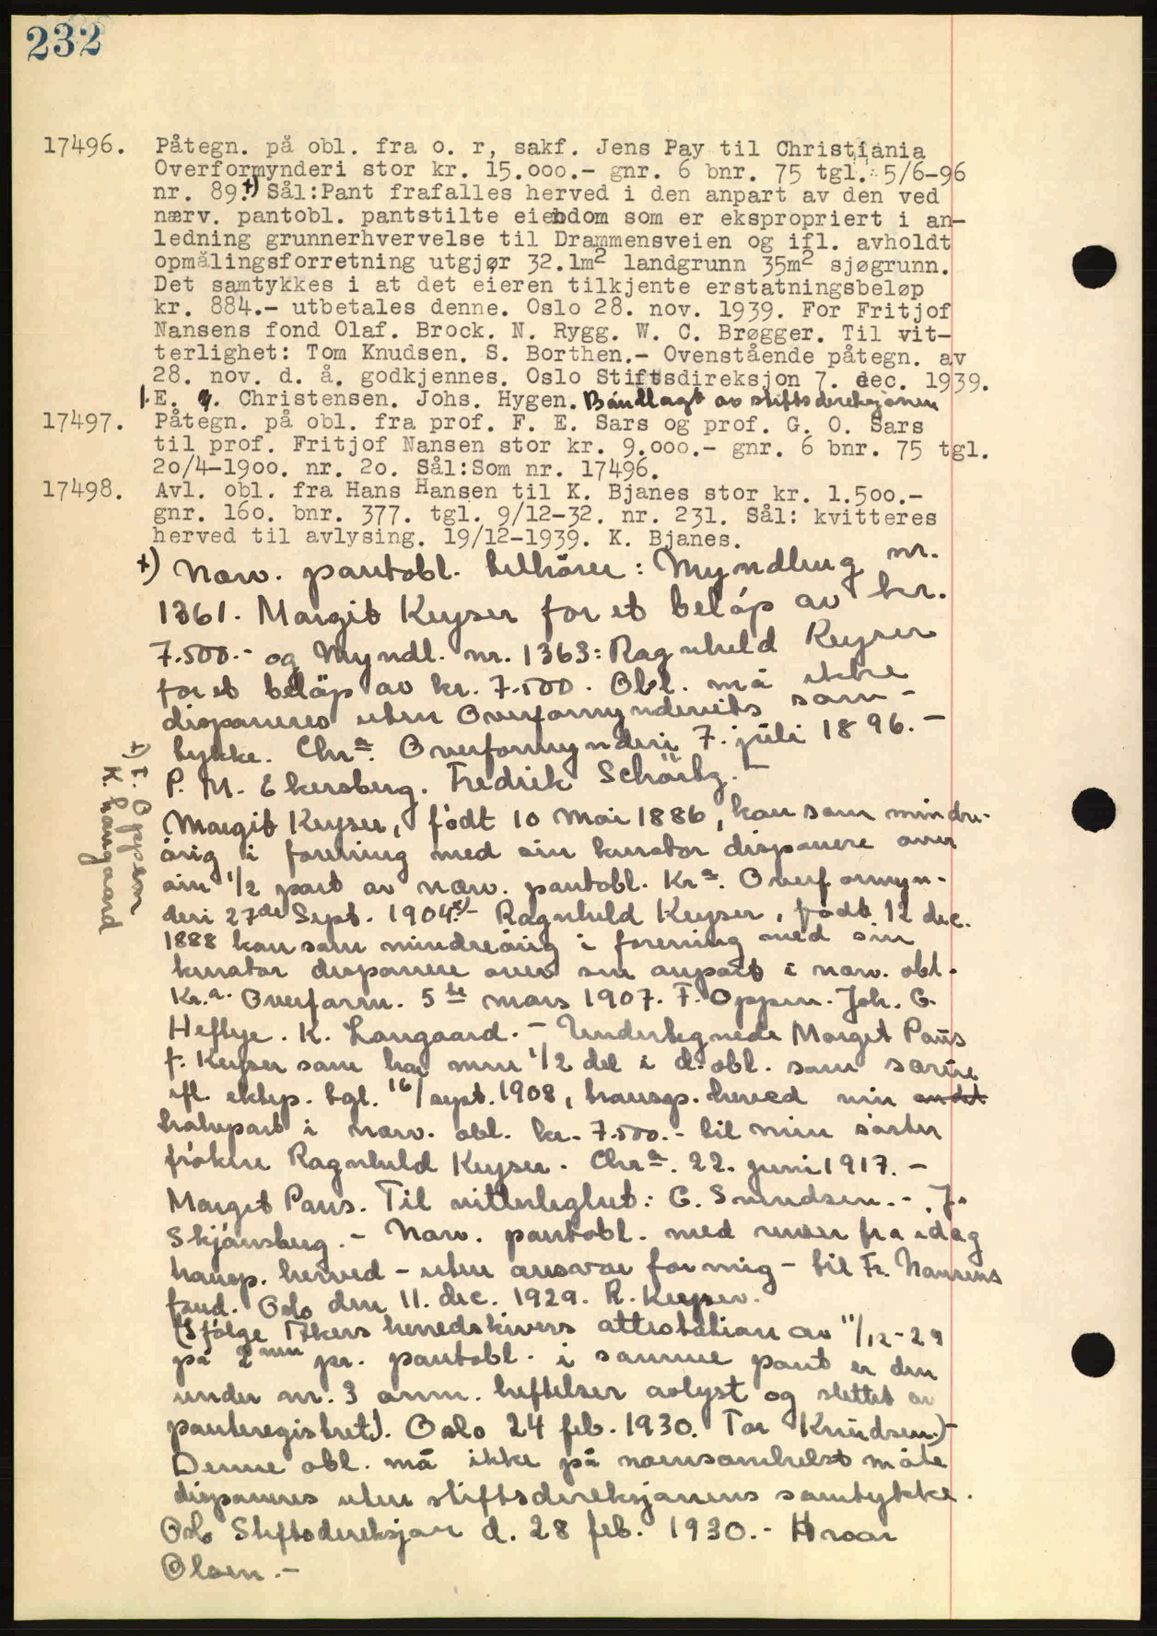 232
17496. Påtegn. på obl. fra o. r, sakf. Jens Pay til Christiania
Overformynderi stor kr. 15.ooo.- gnr. 6 bnr. 75 tgl. 5/6-96
nr. 89.+) Sål:Pant frafalles herved i den anpart av den ved
nærv. pantobl. pantstilte eiendom som er ekspropriert i an-
ledning grunnerhvervelse til Drammensveien og ifl. avholdt
opmålingsforretning utgjør 32.1m2 landgrunn 35m2 sjøgrunn.
Det samtykkes i at det eieren tilkjente erstatningsbeløp
kr. 884.- utbetales denne. Oslo 28. nov. 1939. For Fritjof
Nansens fond Olaf. Brock. N. Rygg. W. C. Brøgger. Til vit-
terlighet: Tom Knudsen. S. Borthen.- Ovenstående påtegn. av
28. nov. d. å. godkjennes. Oslo Stiftsdireksjon 7. dec. 1939.
E. . Christensen. Johs. Hygen. Båndlagt av stiftsdireksjonen
17497. Påtegn. på obl. fra prof. F. E. Sars og prof. G. O. Sars
til prof. Fritjof Nansen stor kr. 9.ooo.- gnr. 6 bnr. 75 tgl.
2o/4-19oo. nr. 2o. Sål:Som nr. 17496.
17498. Avl. obl. fra Hans Hansen til K. Bjanes stor kr. 1.5oo.-
gnr. 16o. bnr. 377. tgl. 9/12-32. nr. 231. Sål: kvitteres
herved til avlysing. 19/12-1939. K. Bjanes.
+) Nærv. pantobl. tilhører: Myndling nr.
1361. Margit Keyser for et beløp av kr.
7.500.- og Myndl. nr. 1363: Ragnhild Keyser
for et beløp av kr. 7.500. Obl. må ikke
disponeres uten Overformynderiets sam-
tykke. Chr.a Overformynderi 7. juli 1896.-
P. M. Ekersberg. Fredrik Schørtz.-
Margit Keyser, født 10 Mai 1886, kan som mindre-
årig i forening med sin kurator disponere over
sin 1/2 part av nærv. pantobl. Kr.a. Overformyn-
deri 27de Sept. 1904.x)- Ragnhild Keyser, født 12 dec.
1888 kan som mindreårig i forening med sin
kurator disponere over sin anpart i nærv. obl.
Kr.a. Overform. 5te mars 1907. F. Oppen. Joh. G.
Heftye. K. Langaard.- Undertegnede Margit Paus
f. Keyser som har min 1/2 del i d. obl. som særeie
ifl. ektep. tgl. 16/sept. 1908, transp. herved min andel
halvpart i nærv. obl. kr. 7.500.- til min søster
frøken Ragnhild Keyser. Chr.a. 22. juni 1917.-
Margit Paus. Til vitterlighet: C. Smundsen.- J.
Skjånsberg.- Nærv. pantobl. med renter fra idag
transp. herved - uten ansvar for mig - til Fr. Nansens
fond. Oslo den 11. dec. 1929. R. Keyser.
(Ifølge Akers herredskivers attestation av 11/12-29
på 2nen pr. pantobl. i samme pant er den
under nr. 3 anm. heftelser avlyst og slettet av
panteregistret). Oslo 24 feb. 1930. Tor Knudsen.)-
Denne obl. må ikke på noensomhelst måte
disponeres uten stiftsdireksjonens samtykke.
Oslo Stiftsdireksjon d. 28 feb. 1930.- Hroar
Olsen.-
x) F. Oppen
K. Langaard